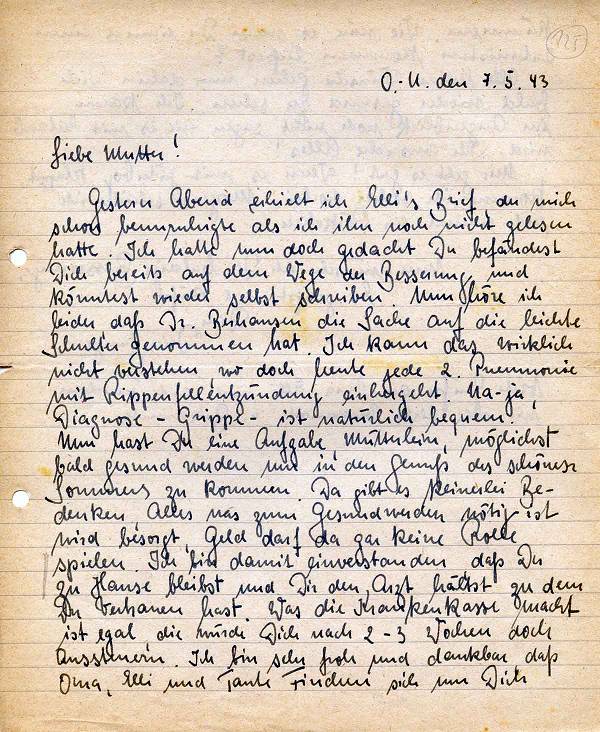 125
O.-U. den 7.5.43
Liebe Mutter!
Gestern Abend erhielt ich Elli's Brief der mich
schon beunruhigte als ich ihn noch nicht gelesen
hatte. Ich hatte nun doch gedacht Du befändest
Dich bereits auf dem Wege der Besserung und
könntest wieder selbst schreiben. Nun höre ich
leider daß Dr. die Sache auf die leichte
Schulter genommen hat. Ich kann das wirklich
nicht verstehen, wo doch heute jede 2. Pneumonie
mit Rippenfellentzündung einhergeht. Na-ja,
Diagnose - Grippe - ist natürlich bequem.
Nun hast Du eine Aufgabe Mütterlein, möglichst
bald gesund werden um in den Genuß des schönen
Sommers zu kommen. Da gibt es keinerlei Be-
denken, alles was zum Gesundwerden nötig ist
wird besorgt, Geld darf da gar keine Rolle
spielen. Ich bin damit einverstanden daß Du
zu Hause bleibst und Dir den Arzt hältst zu dem
Du Vertrauen hast. Was die Krankenkasse macht
ist egal, die würde Dich nach 2-3 Wochen doch
aussteuern. Ich bin sehr froh und dankbar daß
Oma, Elli und Tante sich um Dich